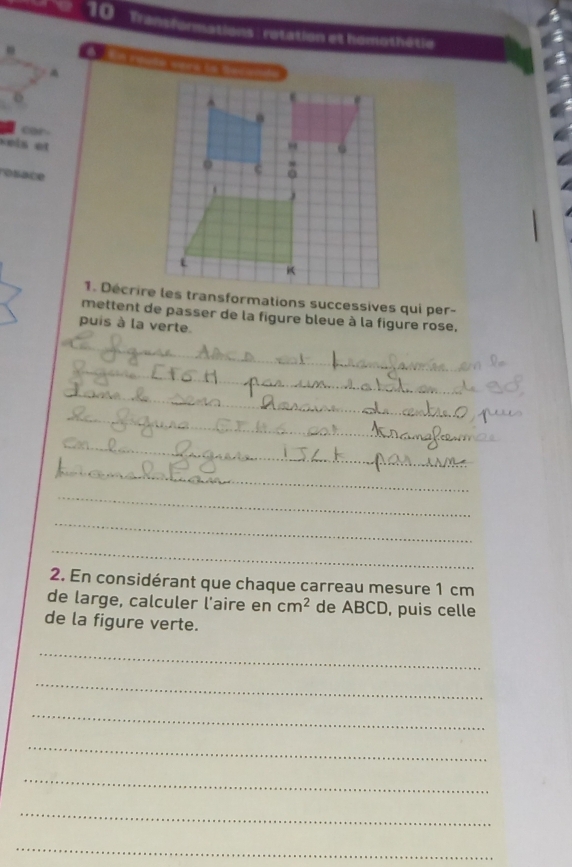 10 Transformations : rotation et homothétie
6 En route vers la Seconde
B
A
D
cor-
els et
rosace
A B E F
D C H G
O
I J
L K
1. Décrire les transformations successives qui per-
mettent de passer de la figure bleue à la figure rose,
puis à la verte.
La figure ABCD est transformée en la
figure EFGH par un rotation de 90°,
dans le sens horaire de centre O, puis
la figure EFHG est transformée
en la figure IJLK par un
translation
2. En considérant que chaque carreau mesure 1 cm
de large, calculer l'aire en cm² de ABCD, puis celle
de la figure verte.